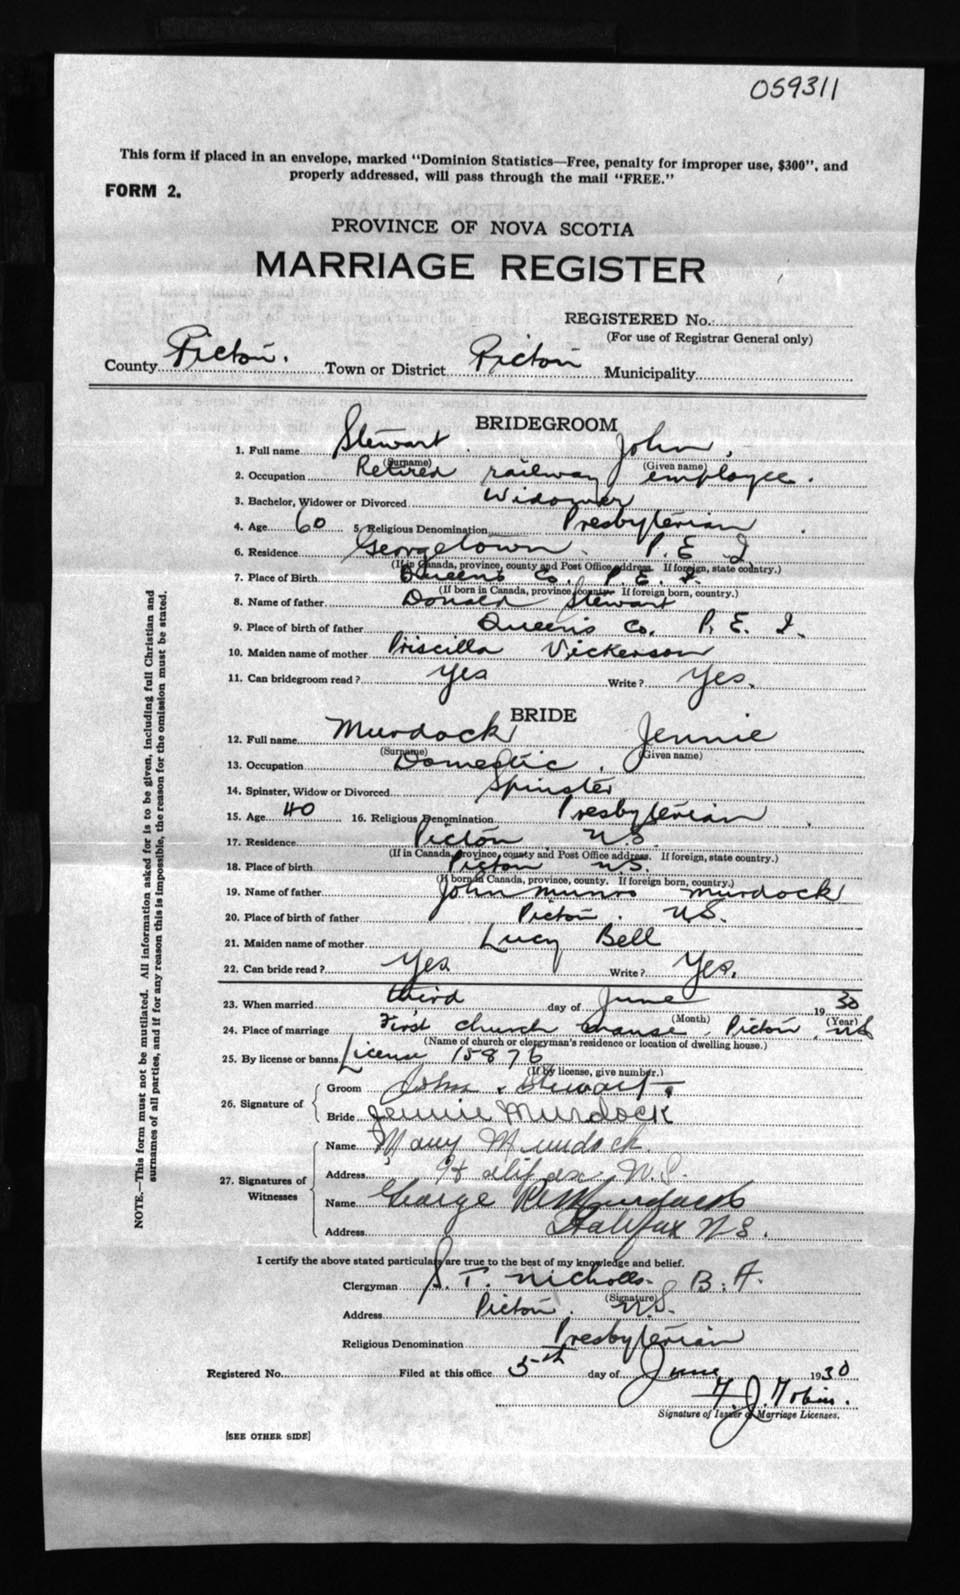 059311
This form if placed in an envelope, marked "Dominion Statistics—Free, penalty for improper use, $300", and
properly addressed, will pass through the mail "FREE."
FORM 2.
PROVINCE OF NOVA SCOTIA
MARRIAGE REGISTER
REGISTERED No.
(For use of Registrar General only)
County Pictou. Town or District Pictou Municipality
BRIDEGROOM
1. Full name Stewart John
(Surname) (Given name)
2. Occupation Retired railway employee.
3. Bachelor, Widower or Divorced Widower
4. Age 60 5. Religious Denomination Presbyterian
6. Residence Georgetown. P. E I
(If in Canada, province, county and Post Office address. If foreign, state country.)
7. Place of Birth Queens Co. P. E. I.
(If born in Canada, province, county. If foreign born, country.)
8. Name of father Donald Stewart
9. Place of birth of father Queen's Co. P. E. I.
10. Maiden name of mother Priscilla Vickerson
11. Can bridegroom read? Yes Write? Yes.
BRIDE
12. Full name Murdock Jennie
(Surname) (Given name)
13. Occupation Domestic.
14. Spinster, Widow or Divorced Spinster
15. Age 40 16. Religious Denomination Presbyterian
17. Residence Pictou N.S.
(If in Canada, province, county and Post Office address. If foreign, state country.)
18. Place of birth Pictou N.S.
(If born in Canada, province, county. If foreign born, country.)
19. Name of father John Munro Murdock
20. Place of birth of father Pictou. N.S.
21. Maiden name of mother Lucy Bell
22. Can bride read? Yes Write? Yes.
23. When married third day of June 1930
(Month) (Year)
24. Place of marriage First church manse. Pictou, N.S
(Name of church or clergyman's residence or location of dwelling house.)
25. By license or banns License 15876
(If by license, give number.)
26. Signature of Groom John Stewart
Bride Jennie Murdock
27. Signatures of Witnesses Name Mary Murdock.
Address Halifax N.S.
Name George R Murdock
Address Halifax N S.
I certify the above stated particulars are true to the best of my knowledge and belief.
Clergyman S. T. Nicholls. B. A.
(Signature)
Address Pictou. N.S.
Religious Denomination Presbyterian
Registered No. Filed at this office 5th day of June 1930
J. Tobin.
Signature of Issuer of Marriage Licenses.
[SEE OTHER SIDE]
NOTE.—This form must not be mutilated. All information asked for is to be given, including full Christian and
surnames of all parties, and if for any reason this is impossible, the reason for the omission must be stated.